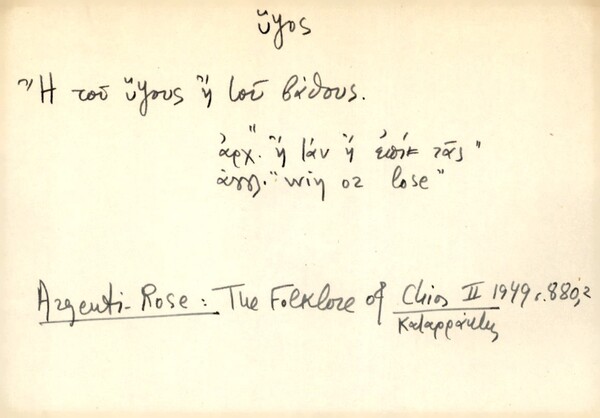 ὕψος
Ἢ τοῦ ὕψους ἢ τοῦ βάθους.
ἀρχ. "ἢ τὰν ἢ ἐπὶ τᾶς"
ἀγγλ. "win or lose"
Argenti-Rose: The Folklore of Chios II 1949 σ. 880,2
Καταρράκτης